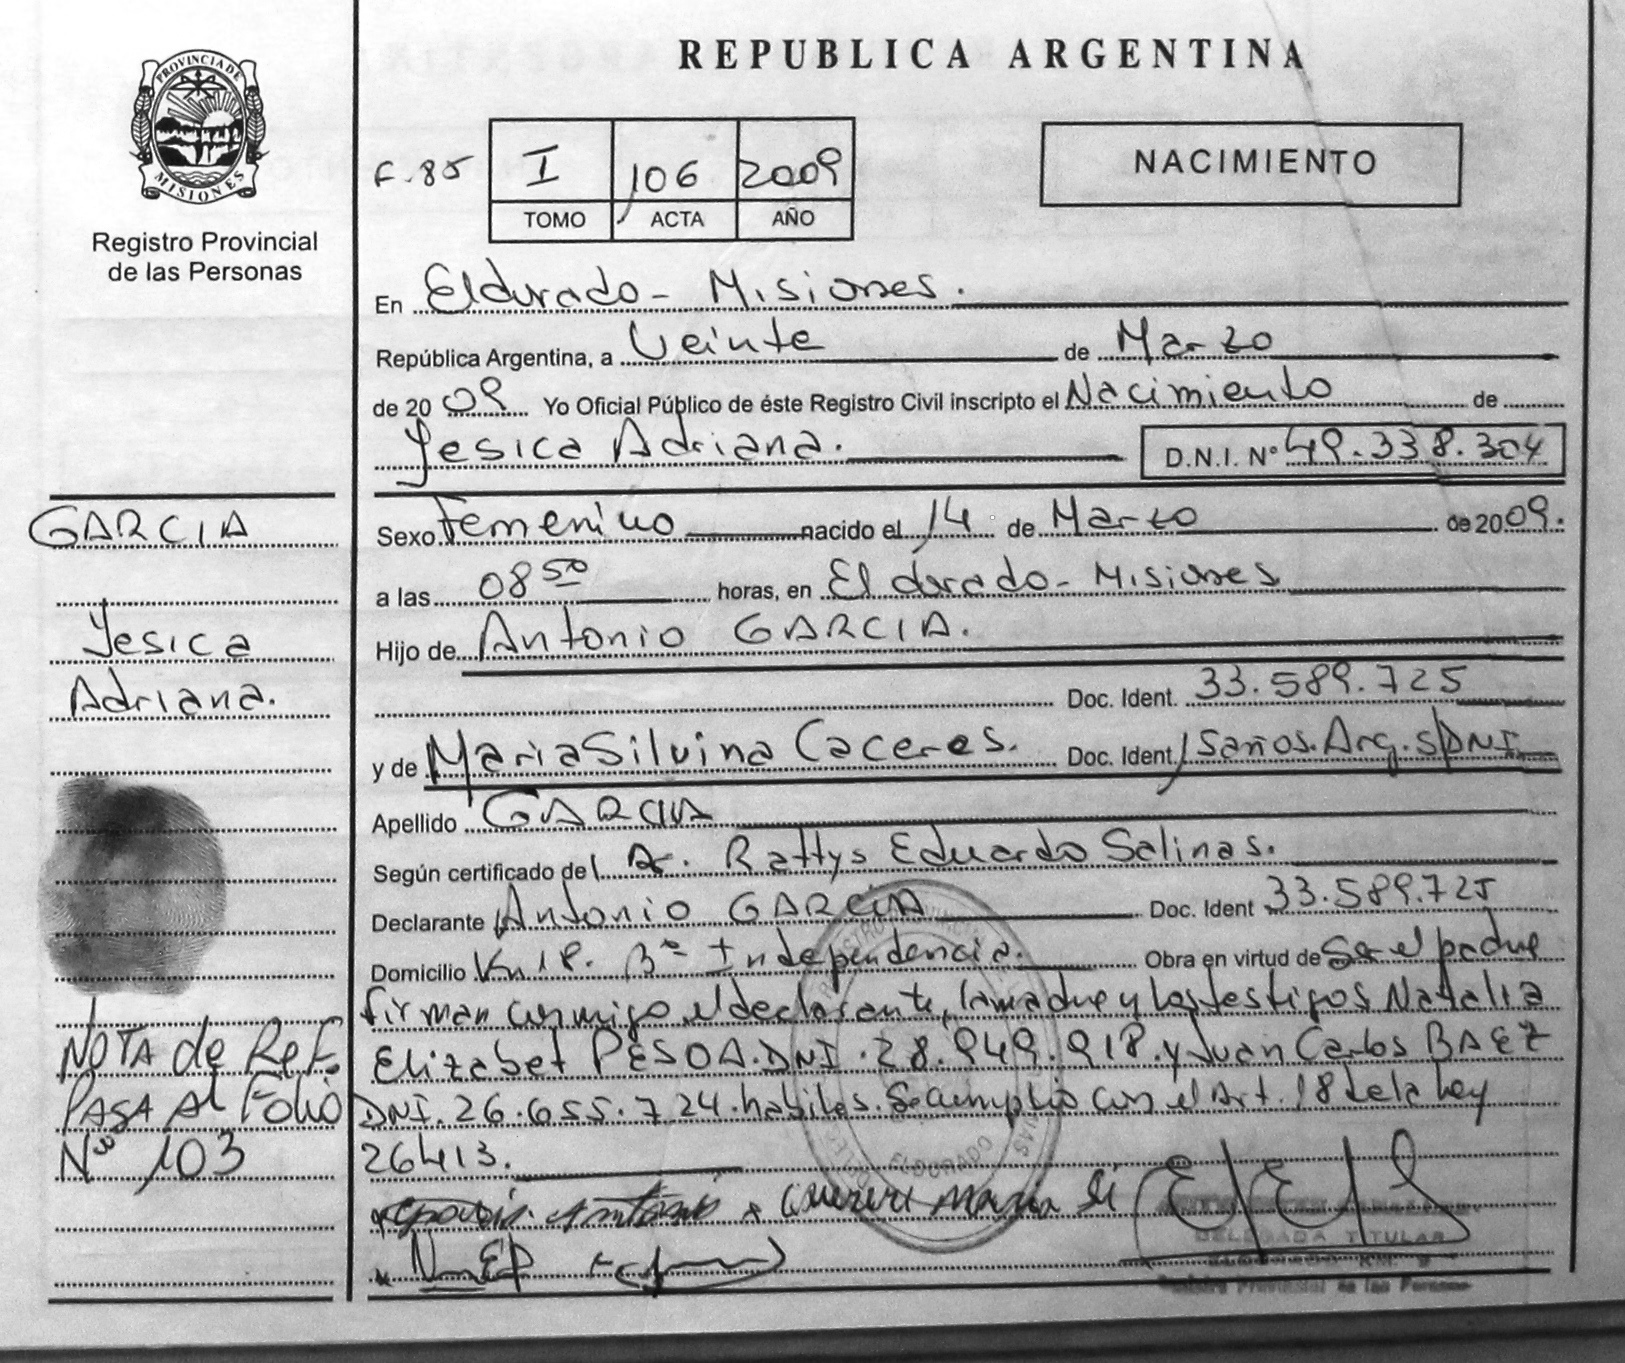 REPUBLICA ARGENTINA
PROVINCIA DE
MISIONES
Registro Provincial
de las Personas
F.85
I 106 2009
TOMO ACTA AÑO
NACIMIENTO
En Eldorado - Misiones.
República Argentina, a Veinte de Marzo
de 20 09 Yo Oficial Público de éste Registro Civil inscripto el Nacimiento de
Yesica Adriana. D.N.I. Nº 49.338.304
GARCIA
Yesica
Adriana.
Sexo Femenino nacido el 14 de Marzo de 2009.
a las 08 50 horas, en Eldorado - Misiones
Hijo de Antonio GARCIA.
Doc. Ident. 33.589.725
y de Maria Silvina Caceres. Doc. Ident. 15 años. Arg. S/DNI
Apellido GARCIA
Según certificado del Dr. Rattys Eduardo Salinas.
Declarante Antonio GARCIA Doc. Ident 33.589.725
Domicilio Km 18. Bº Independencia. Obra en virtud de Ser el padre
firman conmigo el declarante, la madre y los testigos Natalia
Elizabet PESOA. DNI. 28.949.918. y Juan Carlos BAEZ
DNI. 26.655.724. habiles. Se cumplio con el Art. 18 de la Ley
26413.
NOTA de Ref.
PASA Al Folio
Nº 103
ELDORADO
DELEGADA TITULAR
Registro Provincial de las Personas